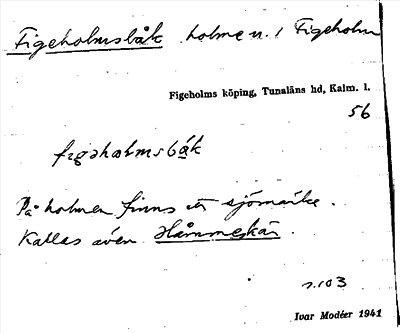 Figeholmsbåk holme n. i Figeholm
Figeholms köping, Tunaläns hd, Kalm. l.
56
figəholmsbåk
På holmen finns ett sjömärke.
Kallas även Hämmeskär.
s. 103
Ivar Modéer 1941